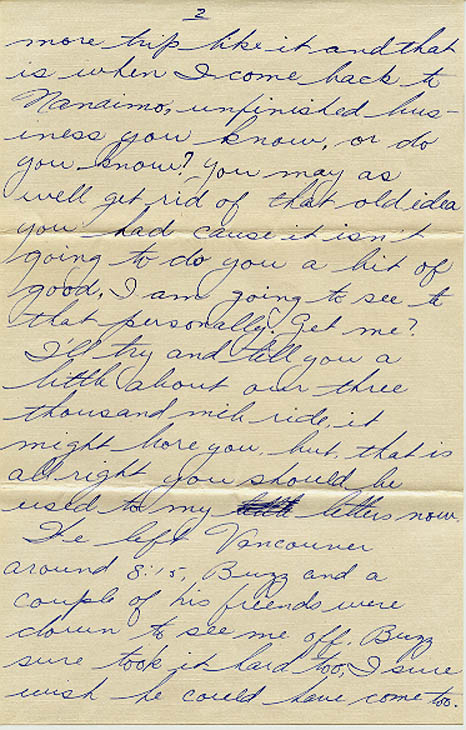 2
more trip like it and that
is when I come back to
Nanaimo, unfinished bus-
iness you know, or do
you know? You may as
well get rid of that old idea
you had cause it isn't
going to do you a bit of
good, I am going to see to
that personally. Get me?
I'll try and tell you a
little about our three
thousand mile ride, it
might bore you, but, that is
all right you should be
used to my letters now.
We left Vancouver
around 8:15, Buzz and a
couple of his friends were
down to see me off. Buzz
sure took it hard too, I sure
wish he could have come too.